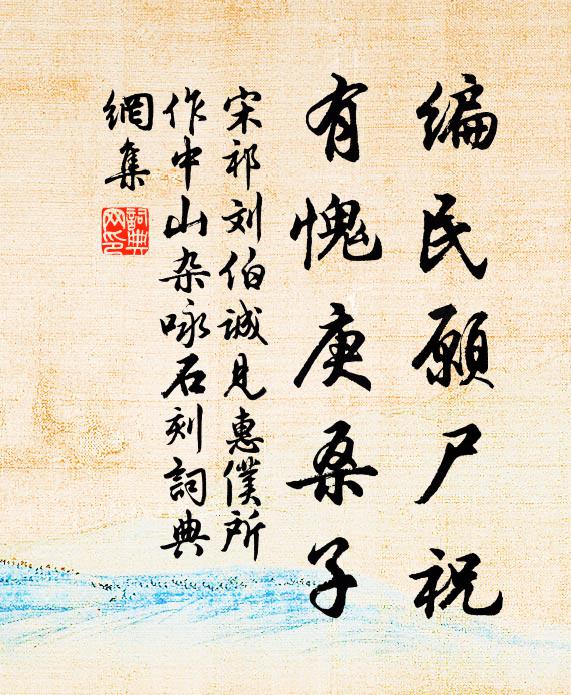 编民愿尸祝
有愧庚桑子
宋祁刘伯诚见惠仆所
作中山杂咏石刻词典
网集
詞典
网印